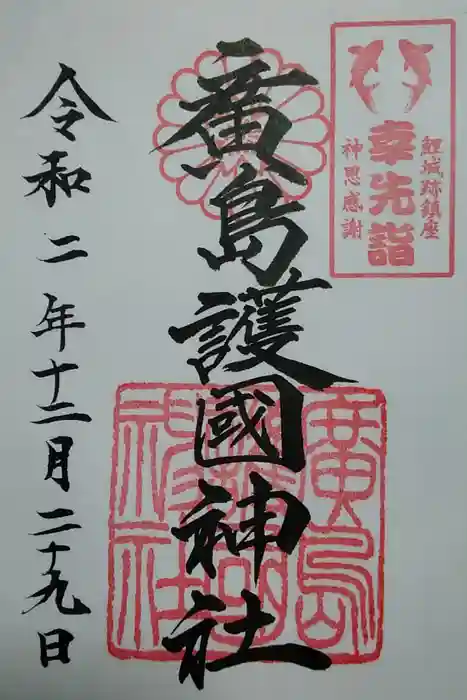 鯉城跡鎮座
幸先詣
神恩感謝
廣島護國神社
令和二年十二月二十九日
廣島
護國
神社